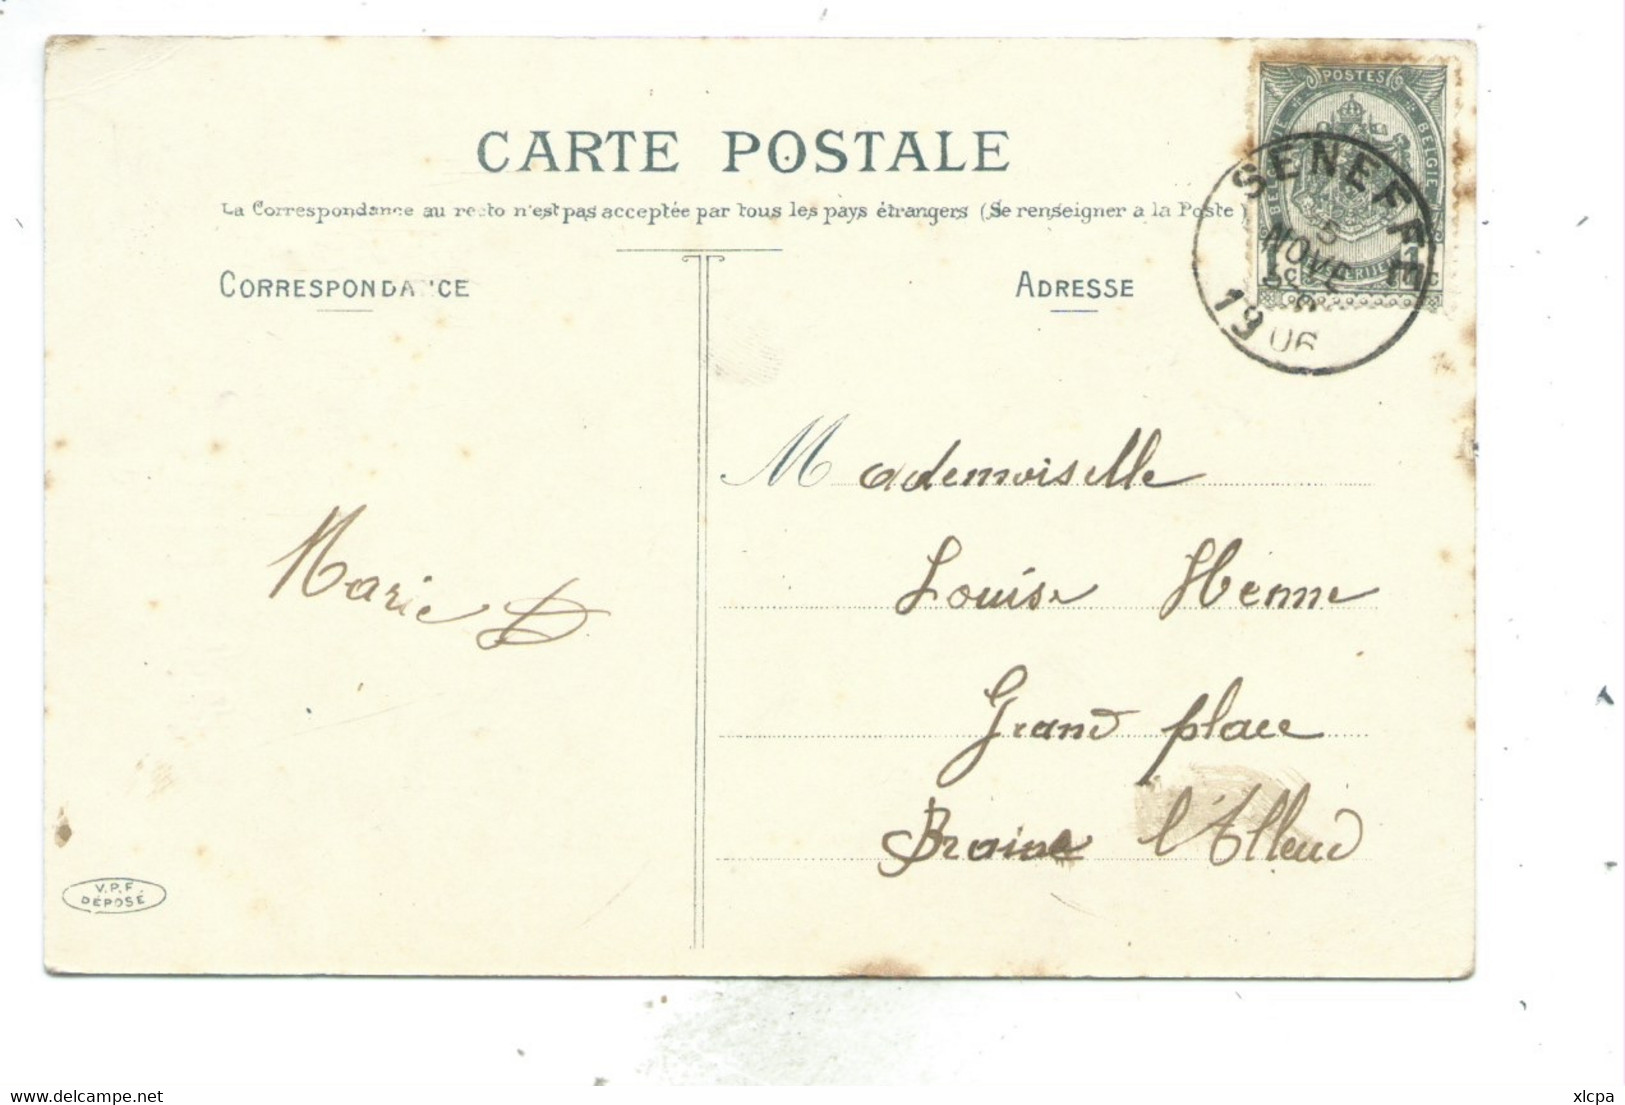 CARTE POSTALE
La Correspondance au recto n'est pas acceptée par tous les pays étrangers (Se renseigner a la Poste)
CORRESPONDANCE
ADRESSE
POSTES
BELGIE
SENEFFE
5
NOVE
1906
Mademoiselle
Louise Henne
Marie D
Grand place
Braine l'Alleud
V.P.F.
DÉPOSÉ
www.delcampe.net
xlcpa